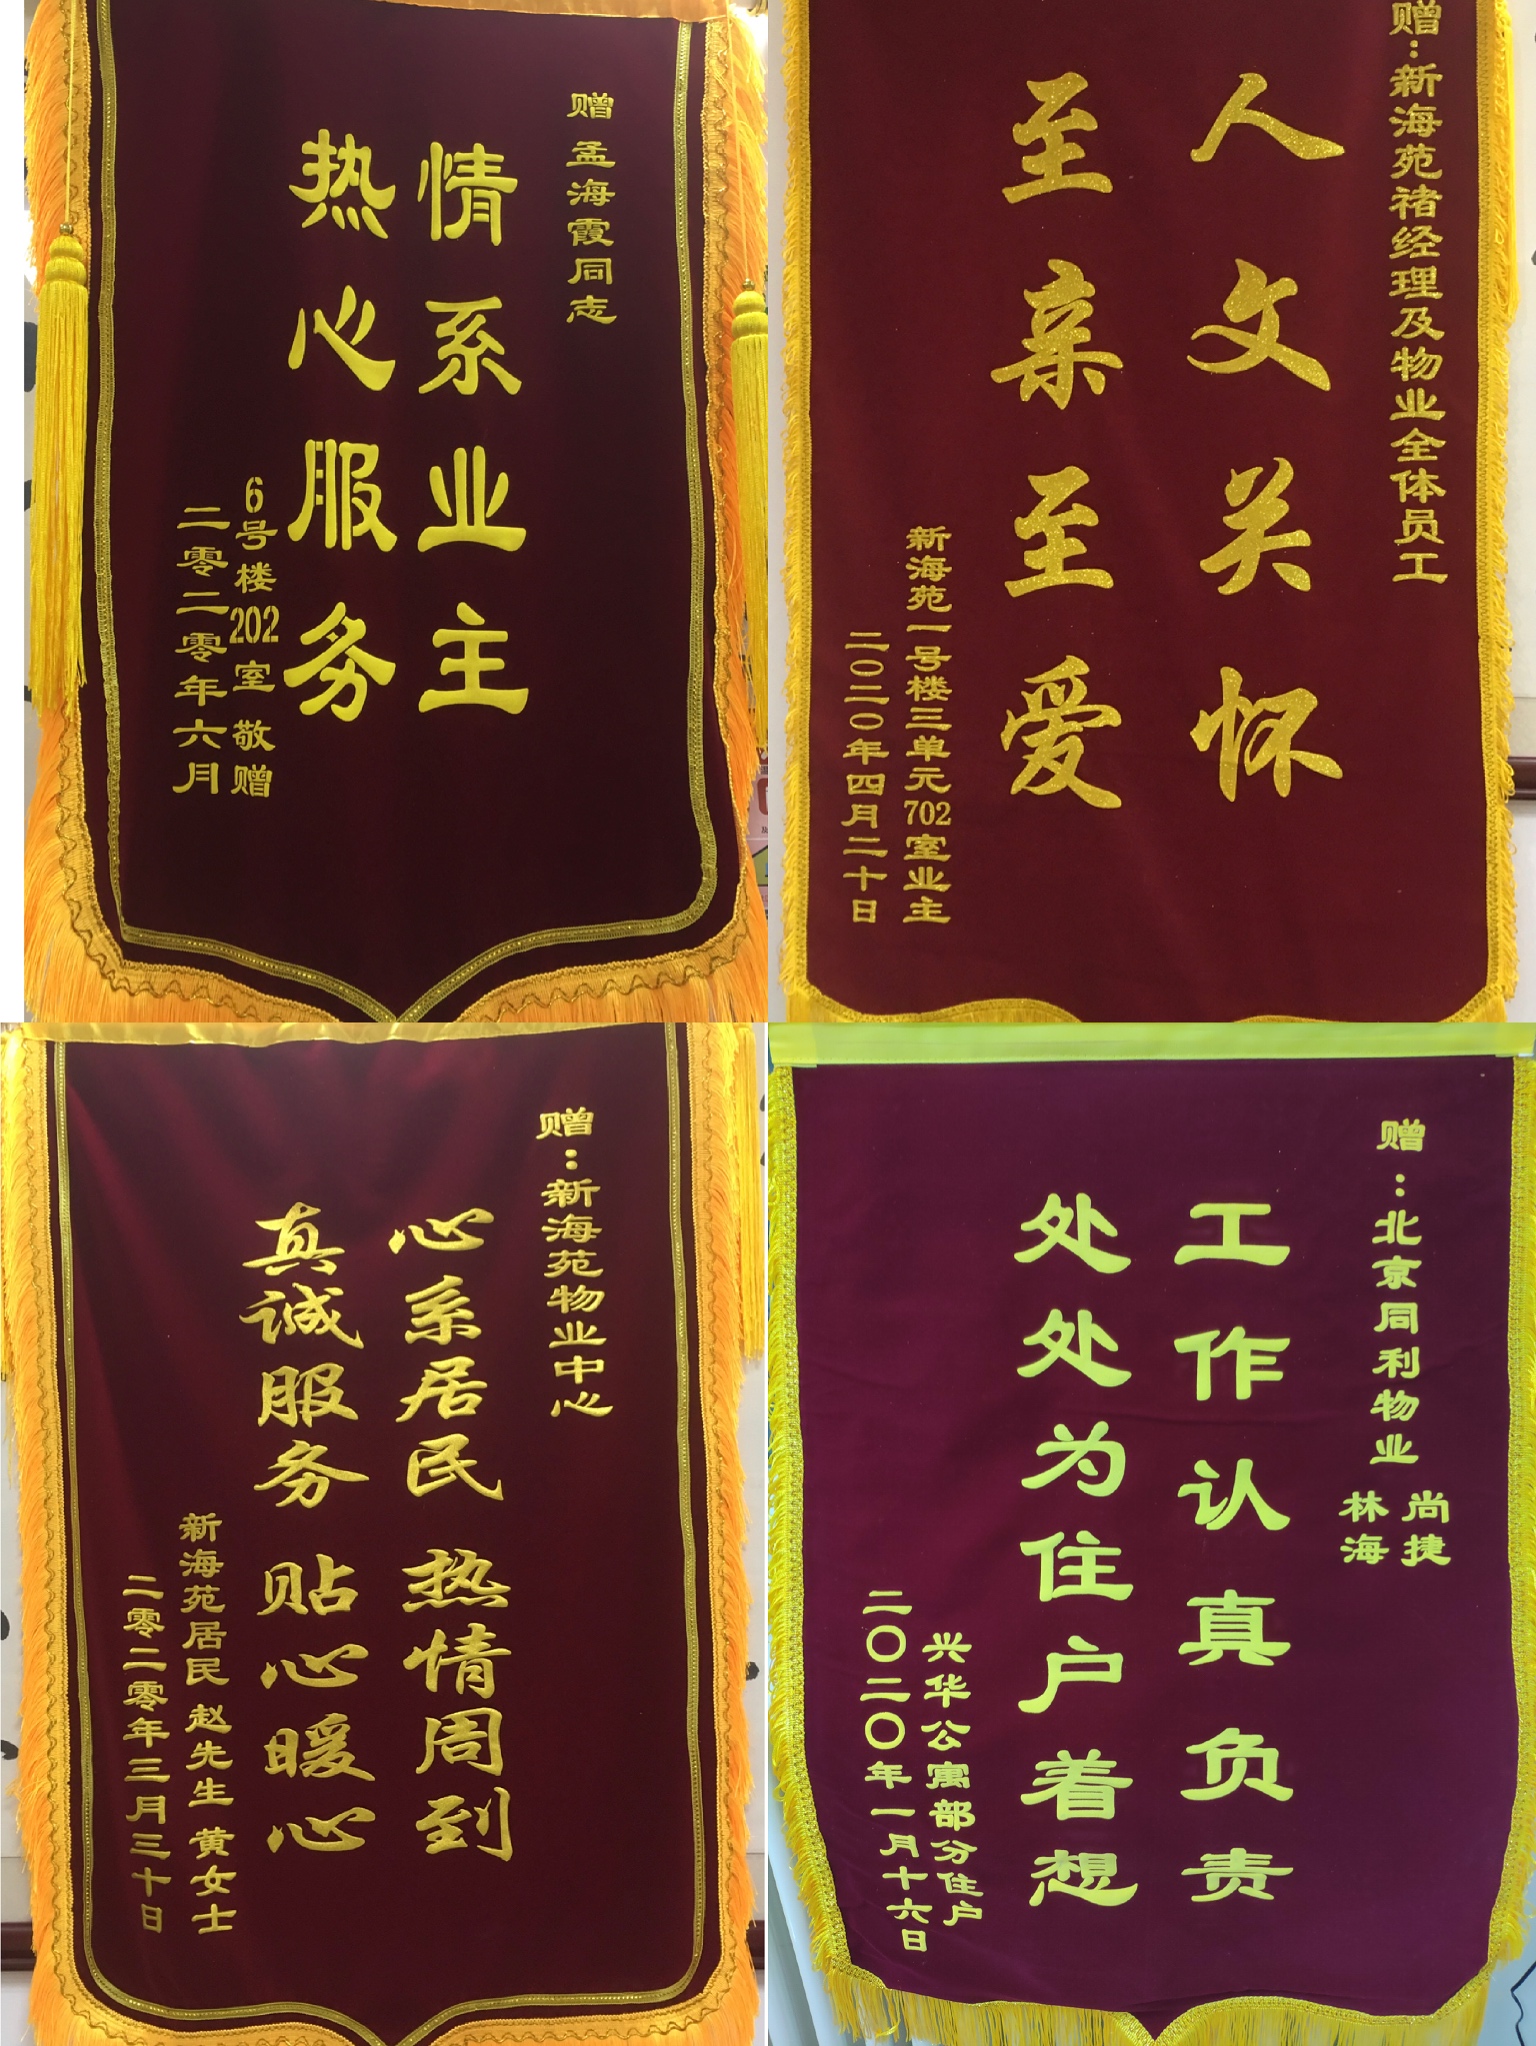 赠 孟海霞同志
情系业主
热心服务
6号楼202室 敬赠
二零二零年六月
赠：新海苑禇经理及物业全体员工
人文关怀
至亲至爱
新海苑一号楼三单元702室业主
二〇二〇年四月二十日
赠：新海苑物业中心
心系居民 热情周到
真诚服务 贴心暖心
新海苑居民 赵先生 黄女士
二零二零年三月三十日
赠：北京同利物业 尚捷
林海
工作认真负责
处处为住户着想
兴华公寓部分住户
二〇二〇年一月十六日